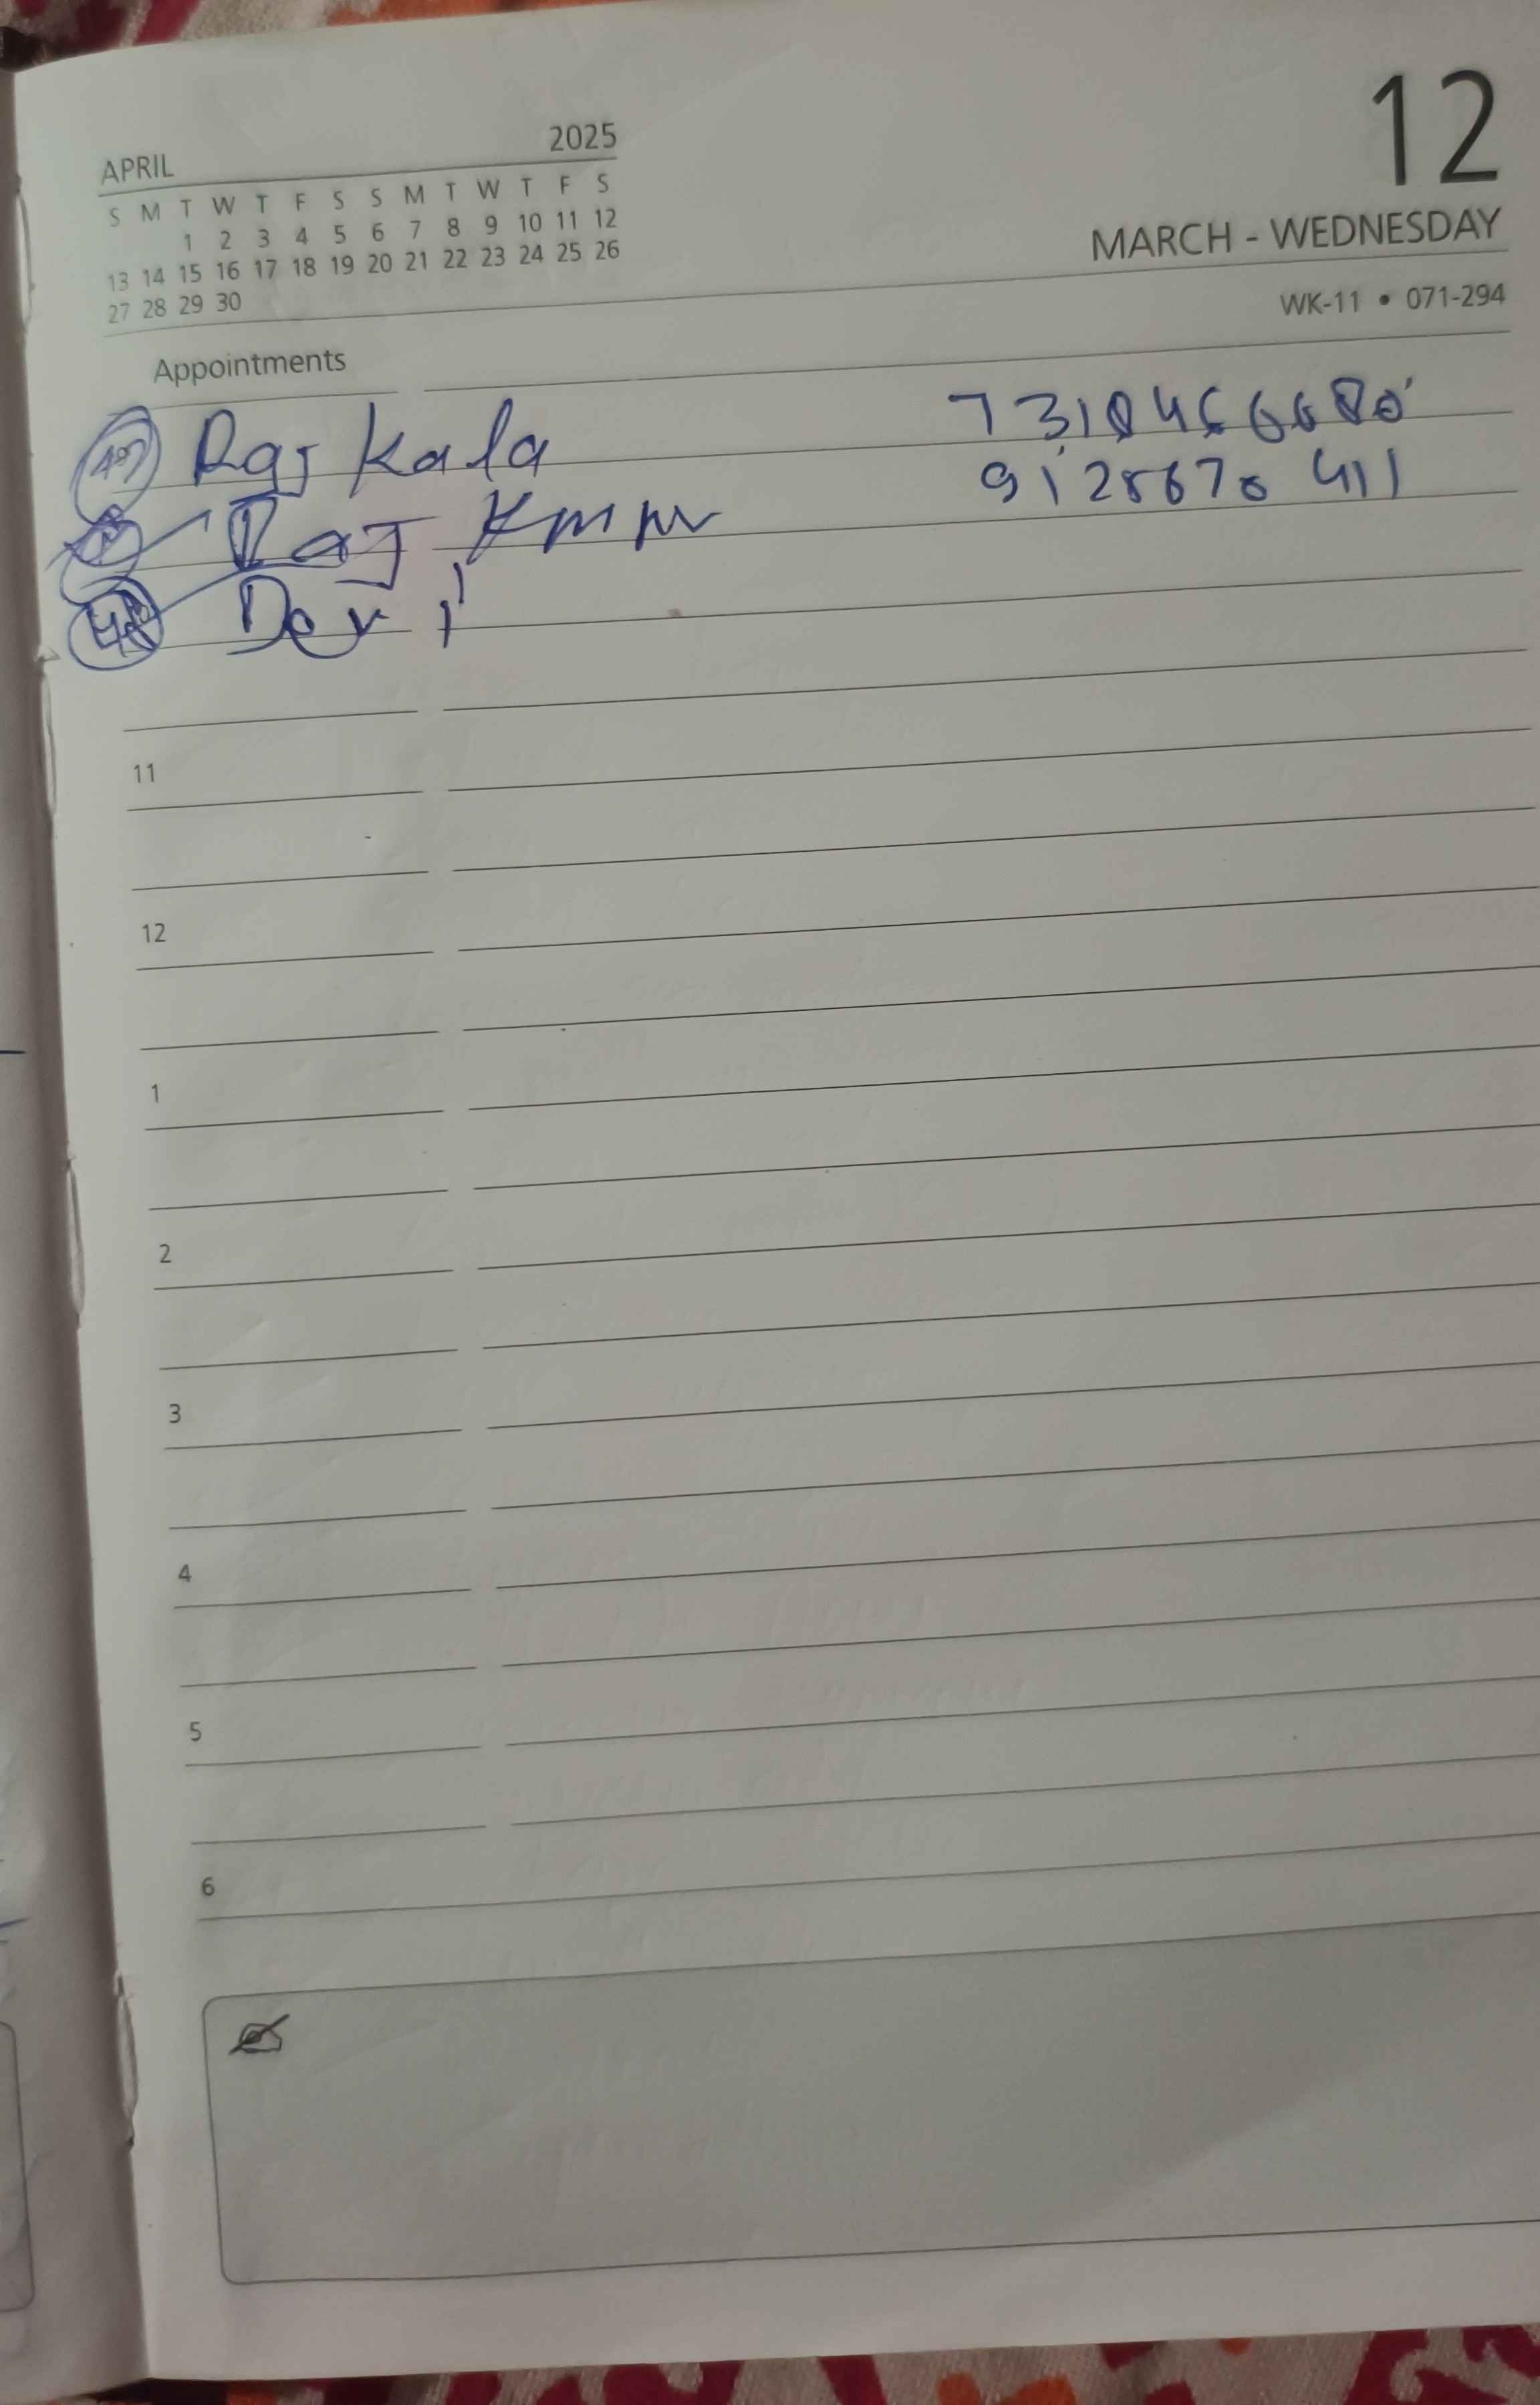 APRIL 2025
S M T W T F S S M T W T F S
1 2 3 4 5 6 7 8 9 10 11 12
13 14 15 16 17 18 19 20 21 22 23 24 25 26
27 28 29 30
12
MARCH - WEDNESDAY
WK-11 • 071-294
Appointments
Raj kala
Raj
Devi
11
12
1
2
3
4
5
6